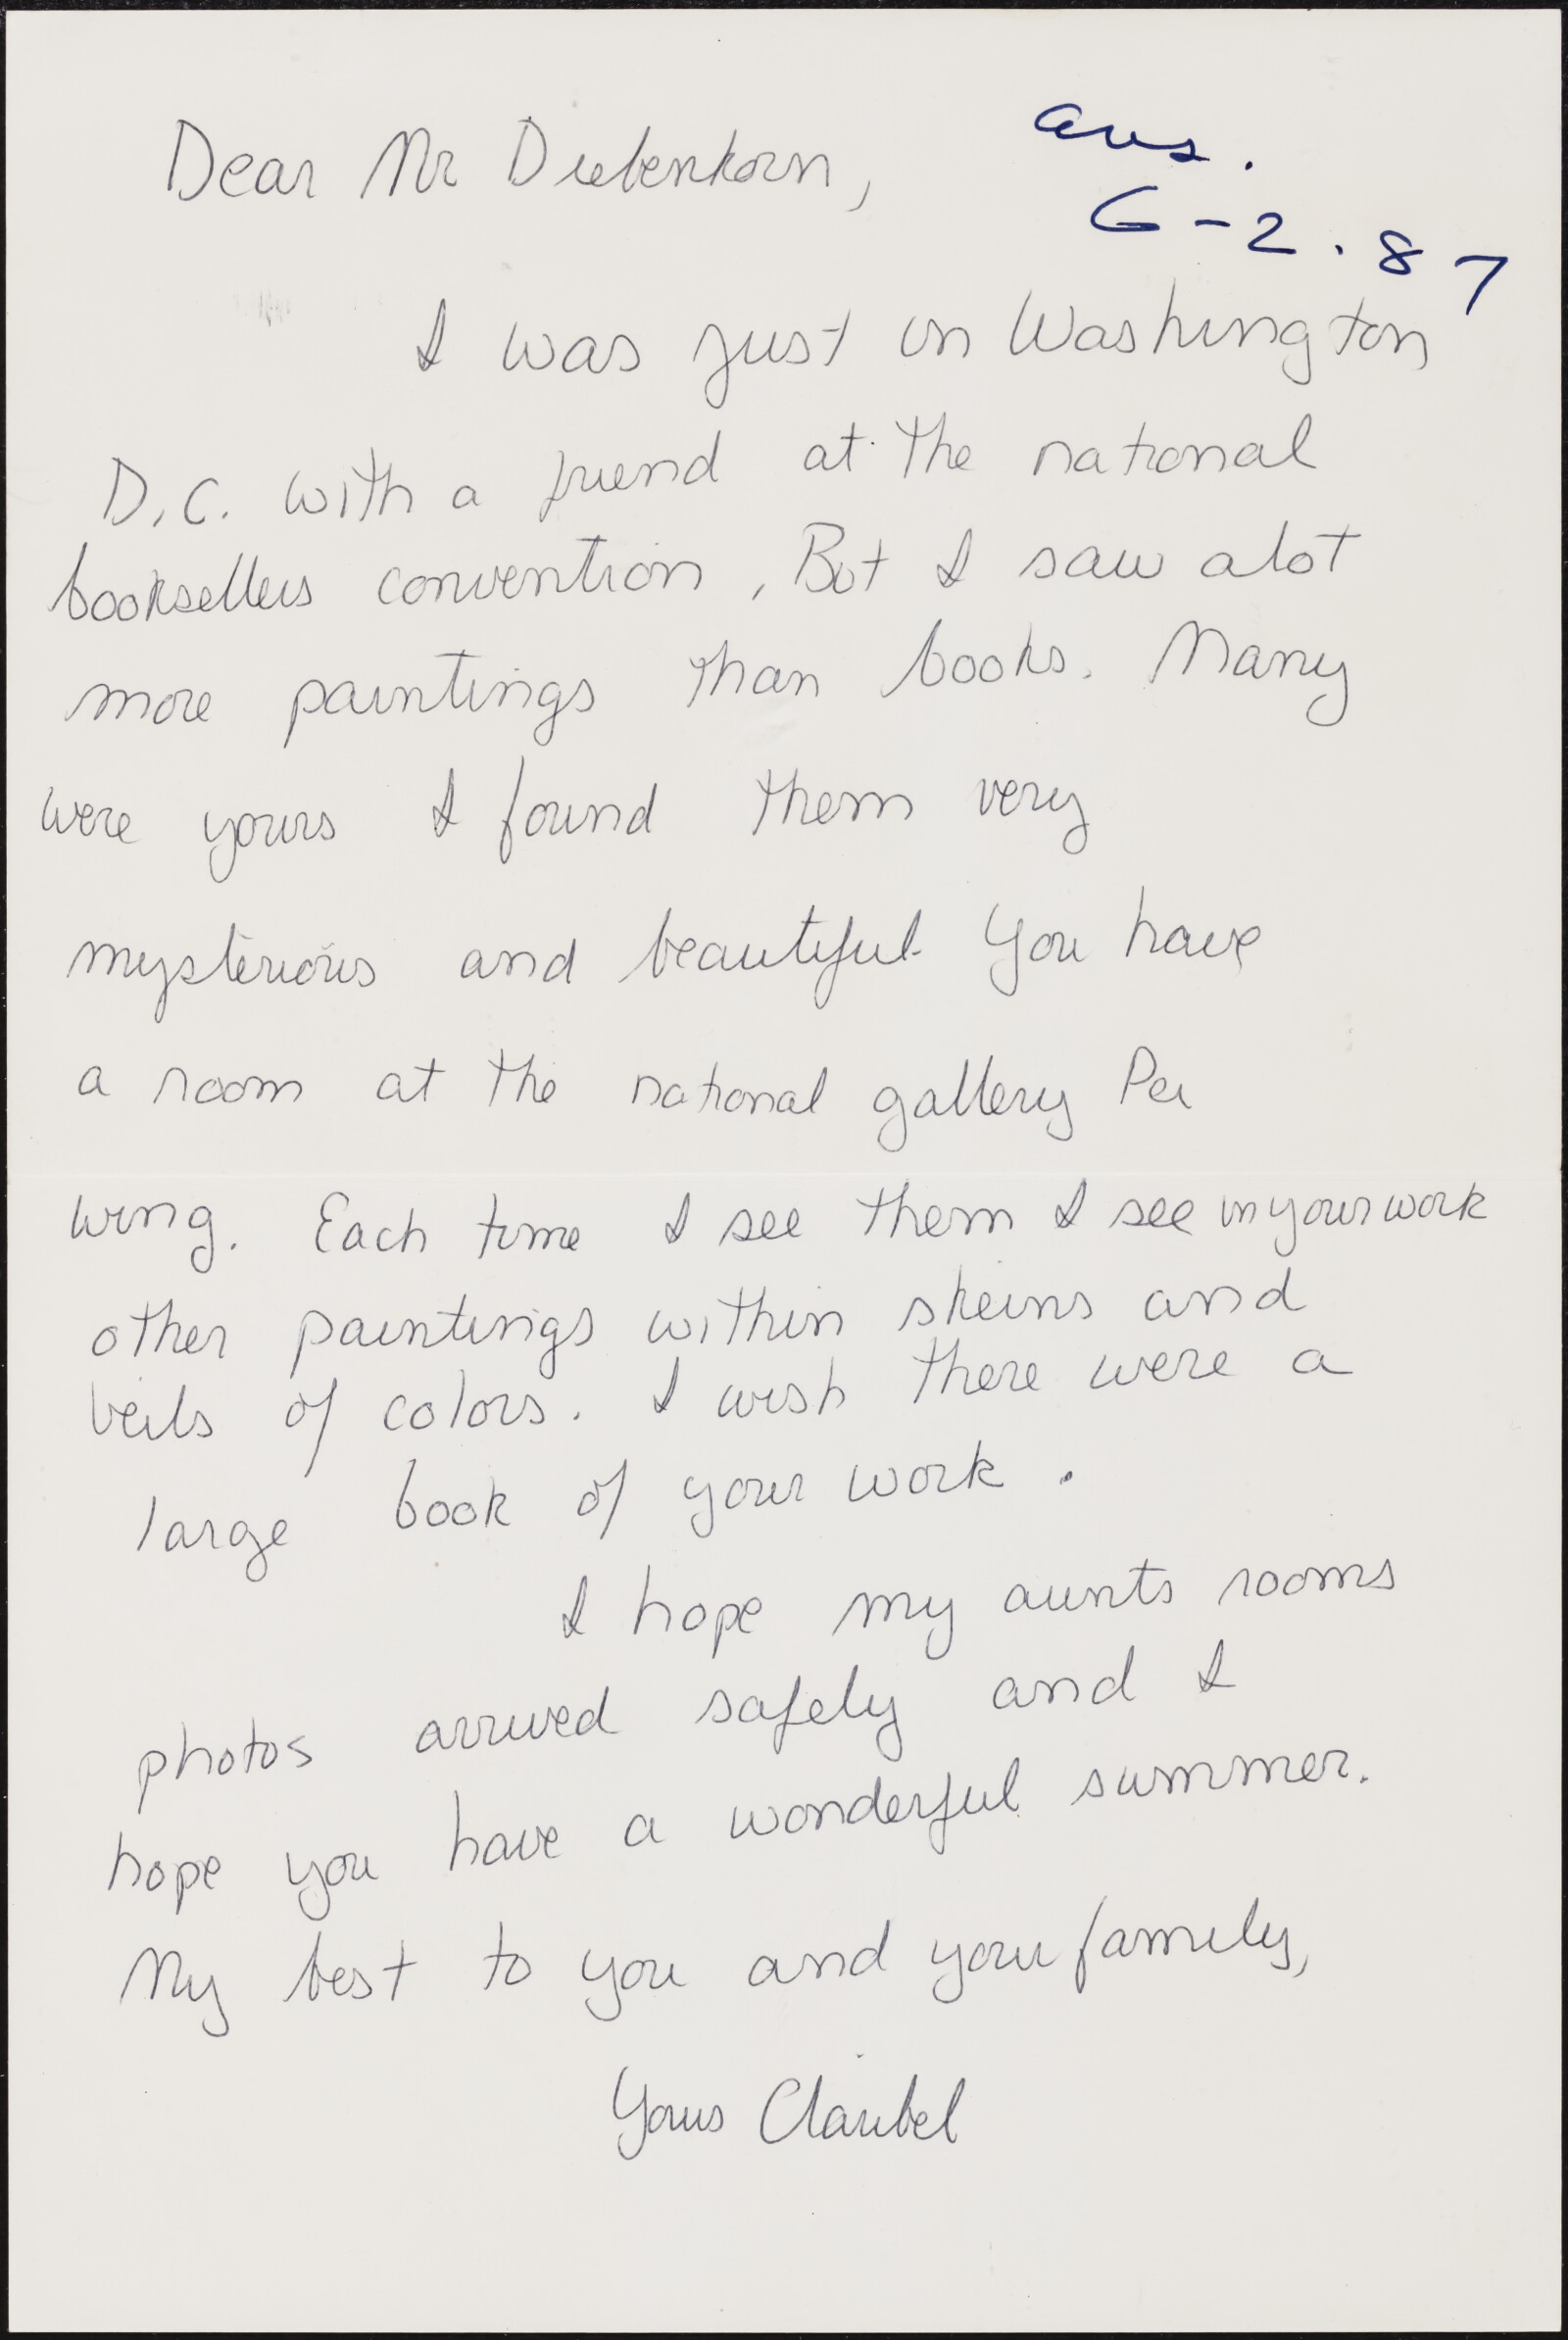 Dear Mr Diebenkorn,
ans.
6-2.87
I was just in Washington
D.C. with a friend at the national
booksellers convention, But I saw alot
more paintings than books. Many
were yours I found them very
mysterious and beautiful. You have
a room at the national gallery Pei
wing. Each time I see them I see in your work
other paintings within skeins and
veils of colors. I wish there were a
large book of your work.
I hope my aunts rooms
photos arrived safely and I
hope you have a wonderful summer.
My best to you and your family,
Yours Claribel